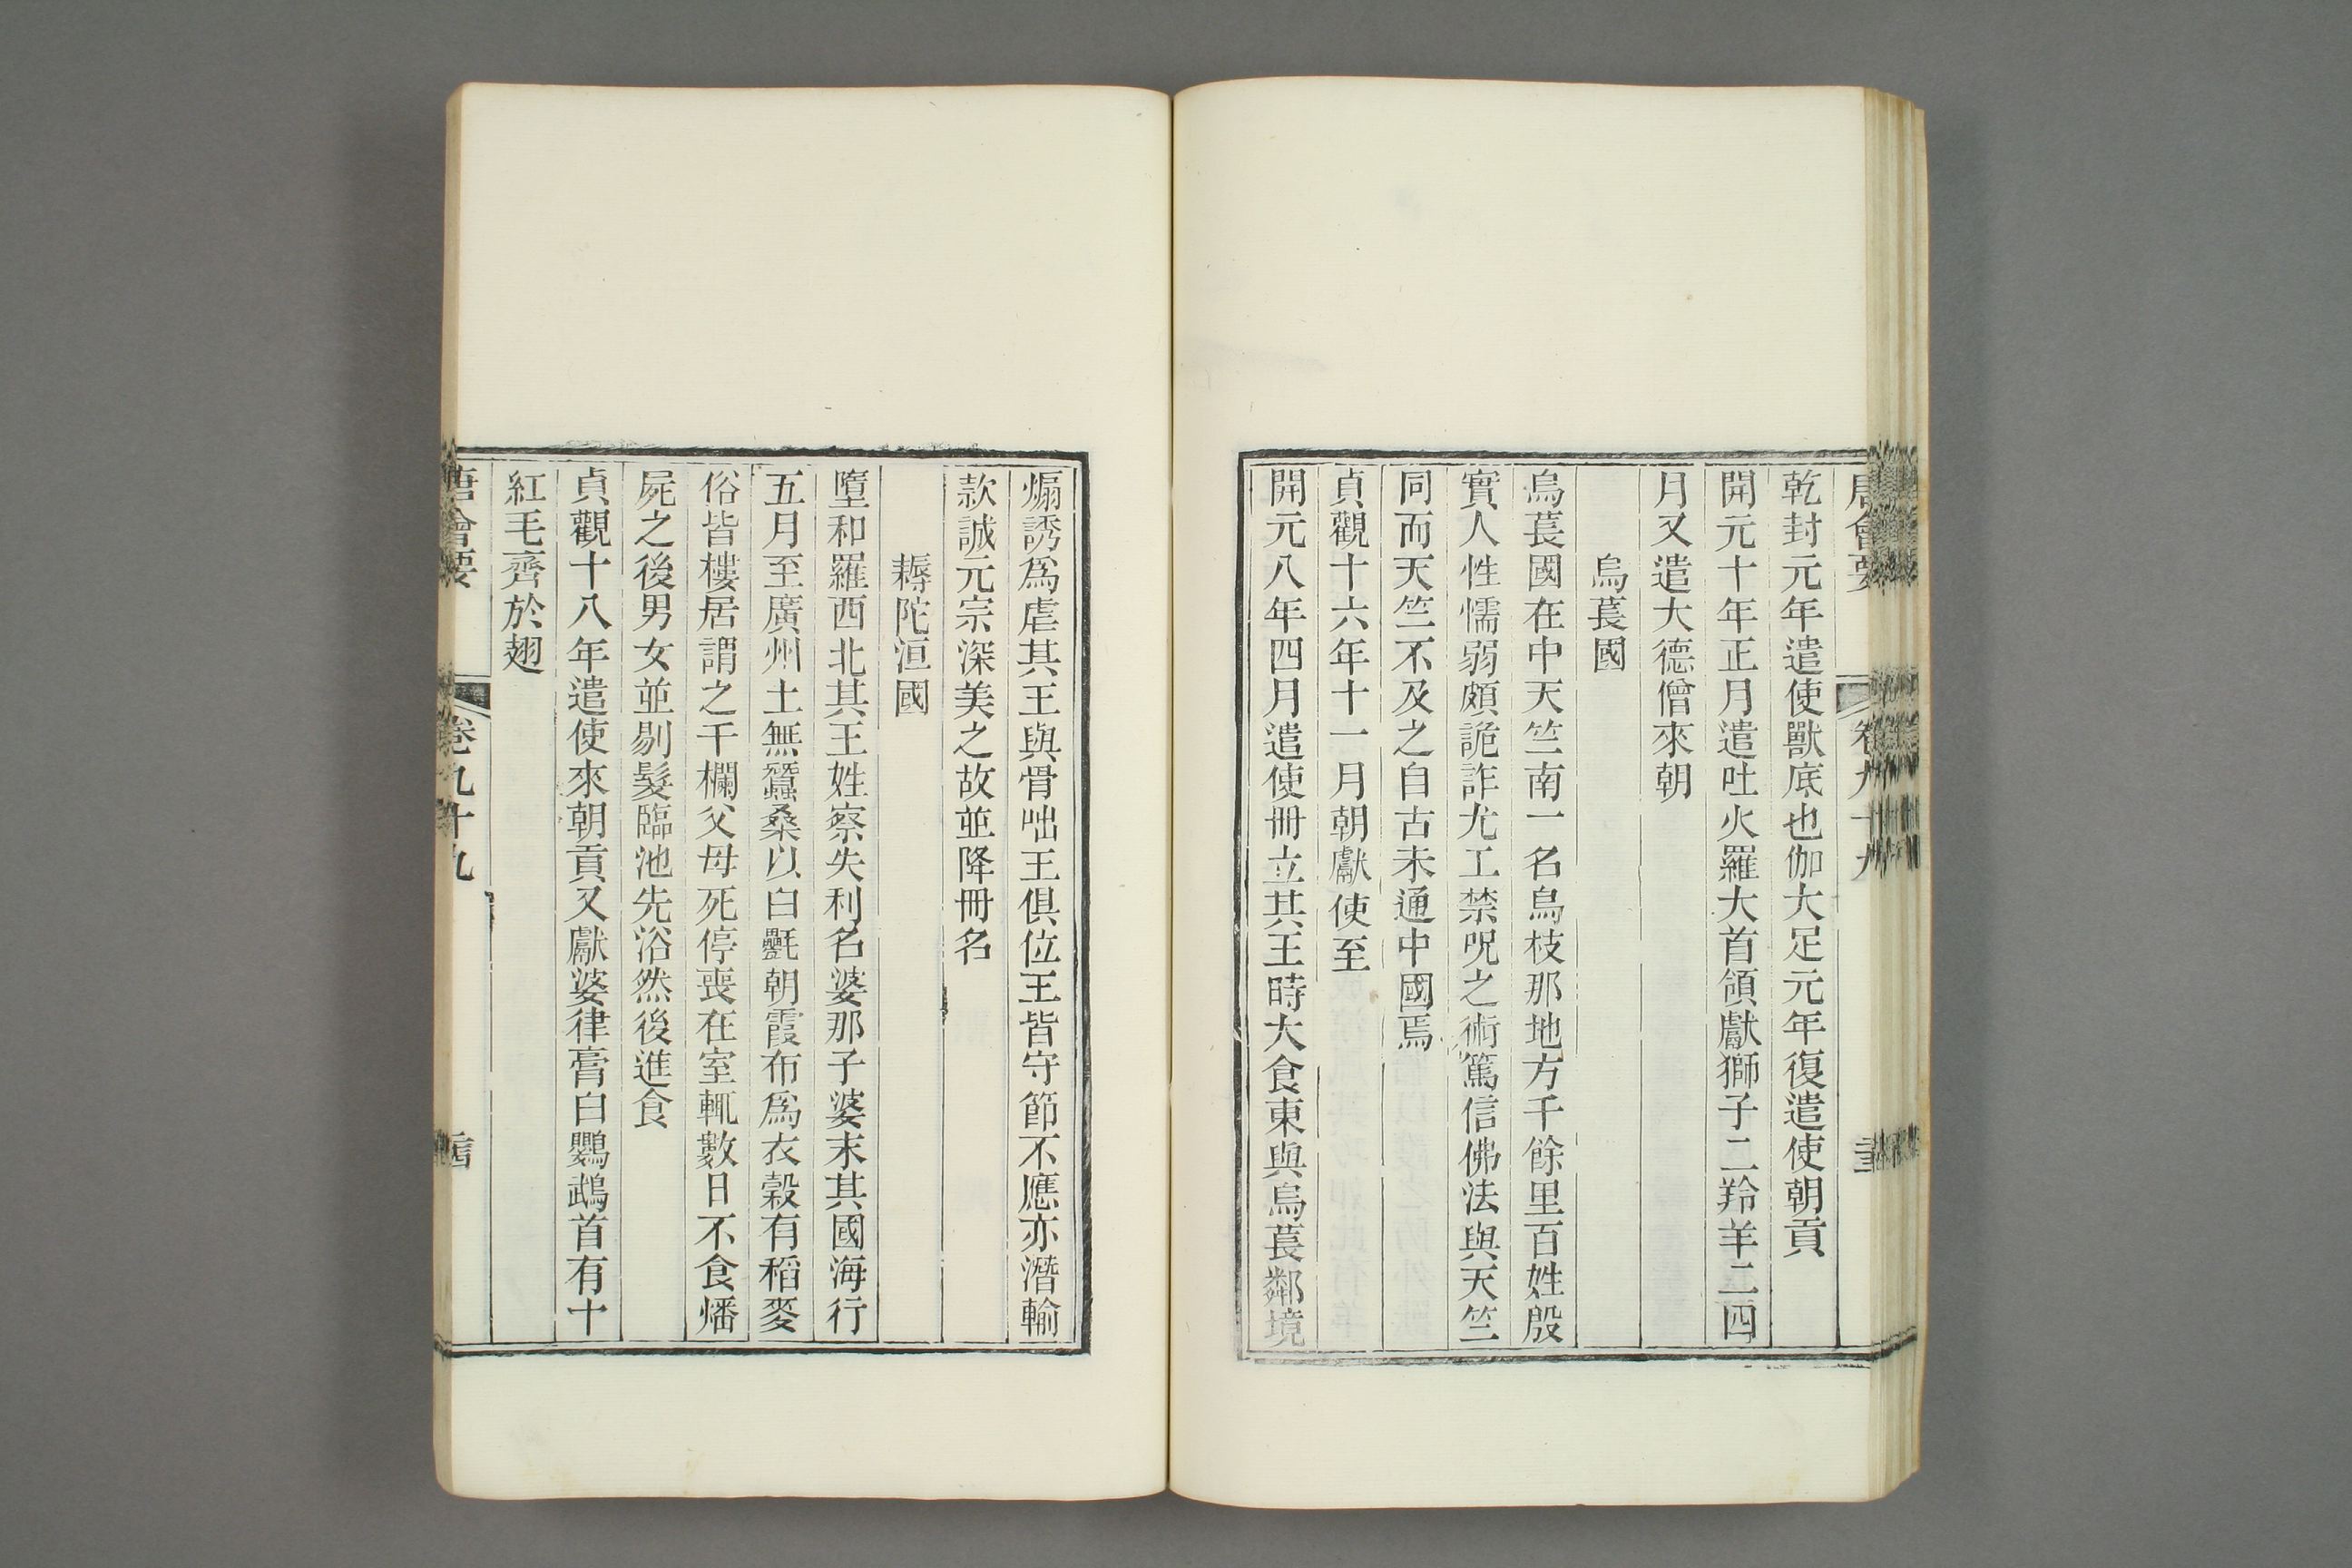 乾封元年遣使獸底也伽大足元年復遣使朝貢
開元十年正月遣吐火羅大首領獻獅子二羚羊二四
月又遣大德僧來朝
烏萇國
烏萇國在中天竺南一名烏枝那地方千餘里百姓殷
實人性懦弱頗詭詐尤工禁呪之術篤信佛法與天竺
同而天竺不及之自古未通中國焉
貞觀十六年十一月朝獻使至
開元八年四月遣使冊立其王時大食東與烏萇鄰境
煽誘爲虐其王與骨咄王俱位王皆守節不應亦潛輸
款誠元宗深美之故並降冊名
耨陀洹國
墮和羅西北其王姓察失利名婆那子婆末其國海行
五月至廣州土無蠶桑以白㲲朝霞布爲衣穀有稻麥
俗皆樓居謂之干欄父母死停喪在室輒數日不食燔
屍之後男女並剔髮臨池先浴然後進食
貞觀十八年遣使來朝貢又獻婆律膏白鸚鵡首有十
紅毛齊於翅
唐會要 卷九十九